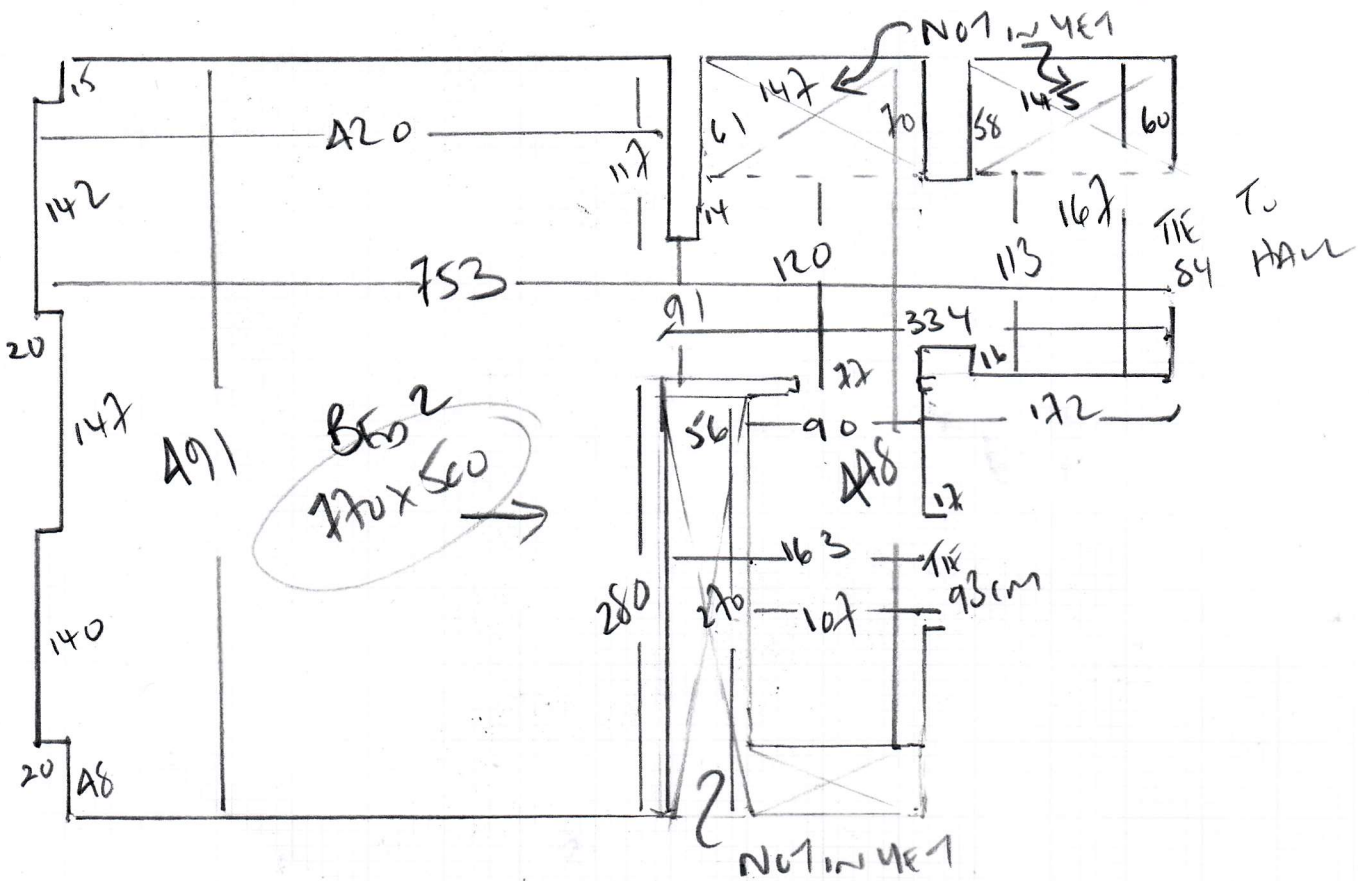 NOT IN YET
15
147
145
420
117
61
70
58
60
142
14
167
TIE TO
84 HALL
753
120
113
91
334
20
16
77
147
BED 2
770 x 500
491
56
90
172
448
17
163
TIE
93cm
280
270
107
140
20
48
NOT IN YET